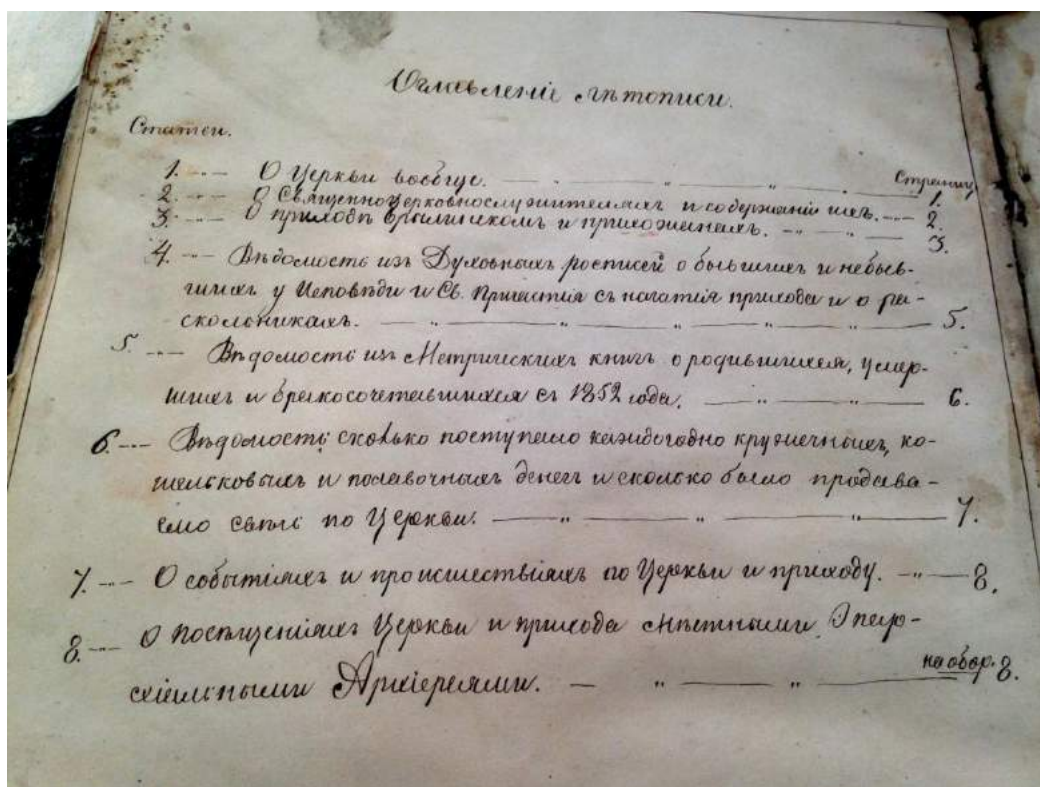 Оглавленіе лѣтописи.
Статьи. Страницы
1. --- О Церкви вообще. — „ — „ — 1.
2. --- О Священноцерковнослужителяхъ и содержаніи ихъ. --- 2.
3. --- О приходѣ и прихожанахъ. --- „ — 3.
4. --- Вѣдомость изъ Духовныхъ росписей о бывшихъ и небыв-
шихъ у Исповѣди и Св. Причастія съ начатія прихода и о ра-
скольникахъ. — „ — „ — „ — „ — „ — 5.
5. --- Вѣдомость изъ Метрическихъ книгъ о родившихся, умер-
шихъ и бракосочетавшихся съ 1852 года. — „ — „ — 6.
6. --- Вѣдомость, сколько поступало каждогодно кружечныхъ, ко-
шельковыхъ и прилавочныхъ денегъ и сколько было продава-
емо свѣчь по Церкви. — „ — „ — „ — 7.
7. --- О событіяхъ и происшествіяхъ по Церкви и приходу. --- 8.
8. --- О посѣщеніяхъ Церкви и прихода мѣстными Эпар-
хіальными Архіереями. — „ — „ — на обор. 8.